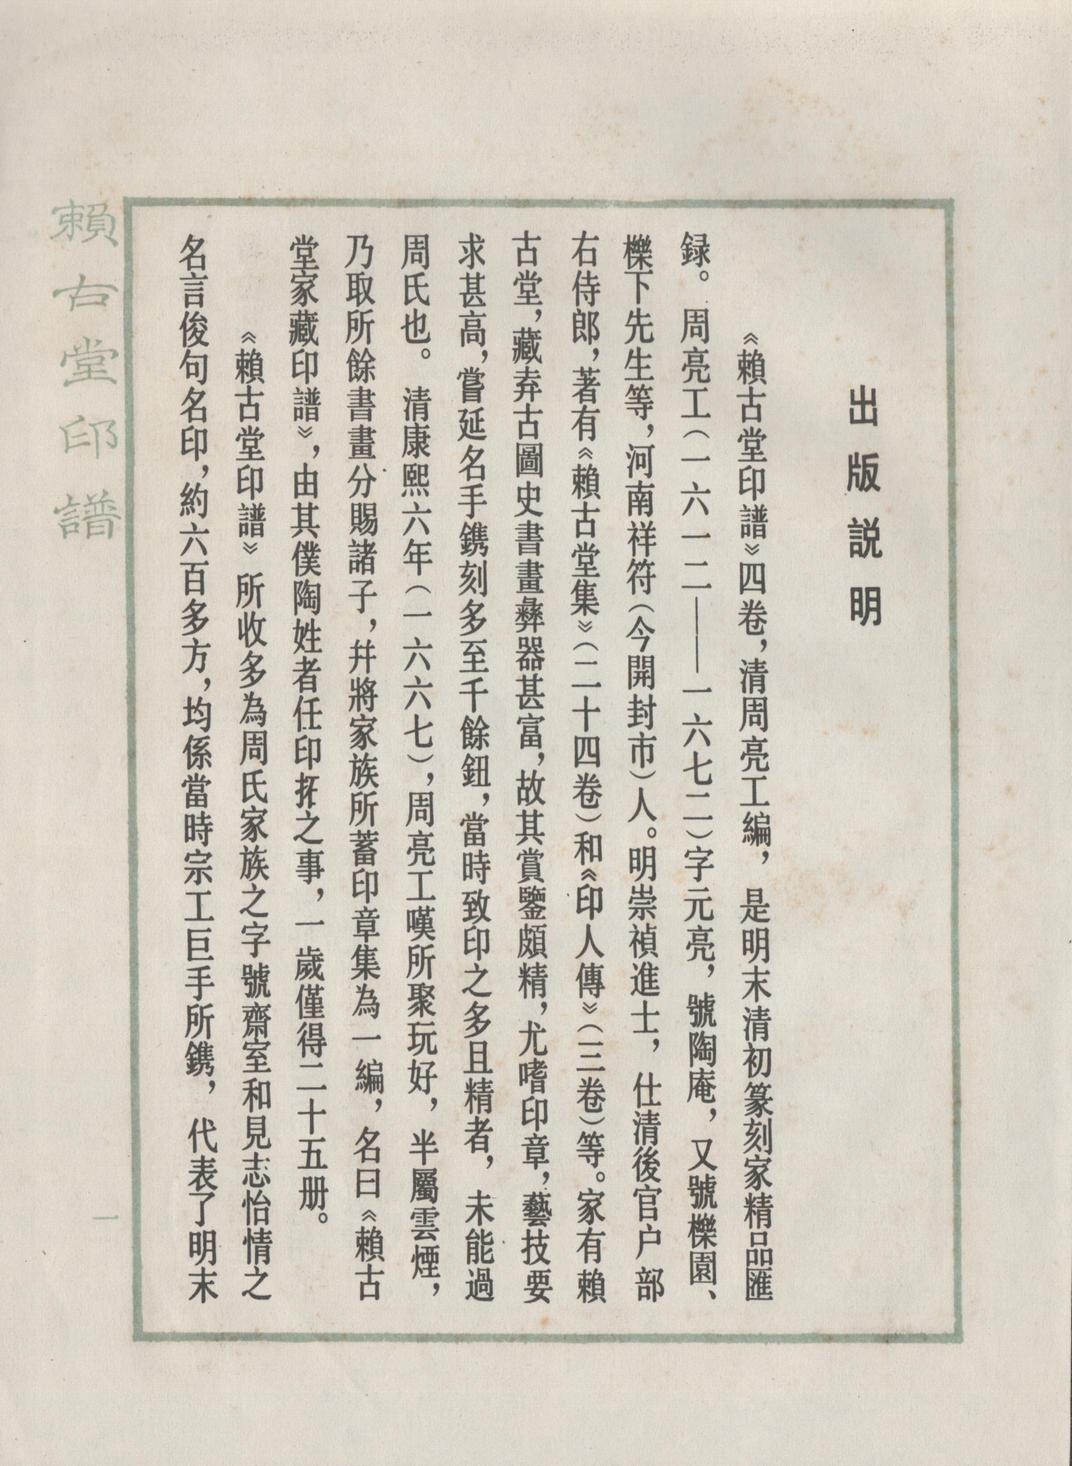 出版説明
《賴古堂印譜》四卷，清周亮工編，是明末清初篆刻家精品匯
録。周亮工（一六一二——一六七二）字元亮，號陶庵，又號櫟園、
櫟下先生等，河南祥符（今開封市）人。明崇禎進士，仕清後官户部
右侍郎，著有《賴古堂集》（二十四卷）和《印人傳》（三卷）等。家有賴
古堂，藏弆古圖史書畫彝器甚富，故其賞鑒頗精，尤嗜印章，藝技要
求甚高，嘗延名手鐫刻多至千餘鈕，當時致印之多且精者，未能過
周氏也。清康熙六年（一六六七），周亮工嘆所聚玩好，半屬雲煙，
乃取所餘書畫分賜諸子，并將家族所蓄印章集為一編，名曰《賴古
堂家藏印譜》，由其僕陶姓者任印拓之事，一歲僅得二十五册。
《賴古堂印譜》所收多為周氏家族之字號齋室和見志怡情之
名言俊句名印，約六百多方，均係當時宗工巨手所鐫，代表了明末
賴古堂印譜
一